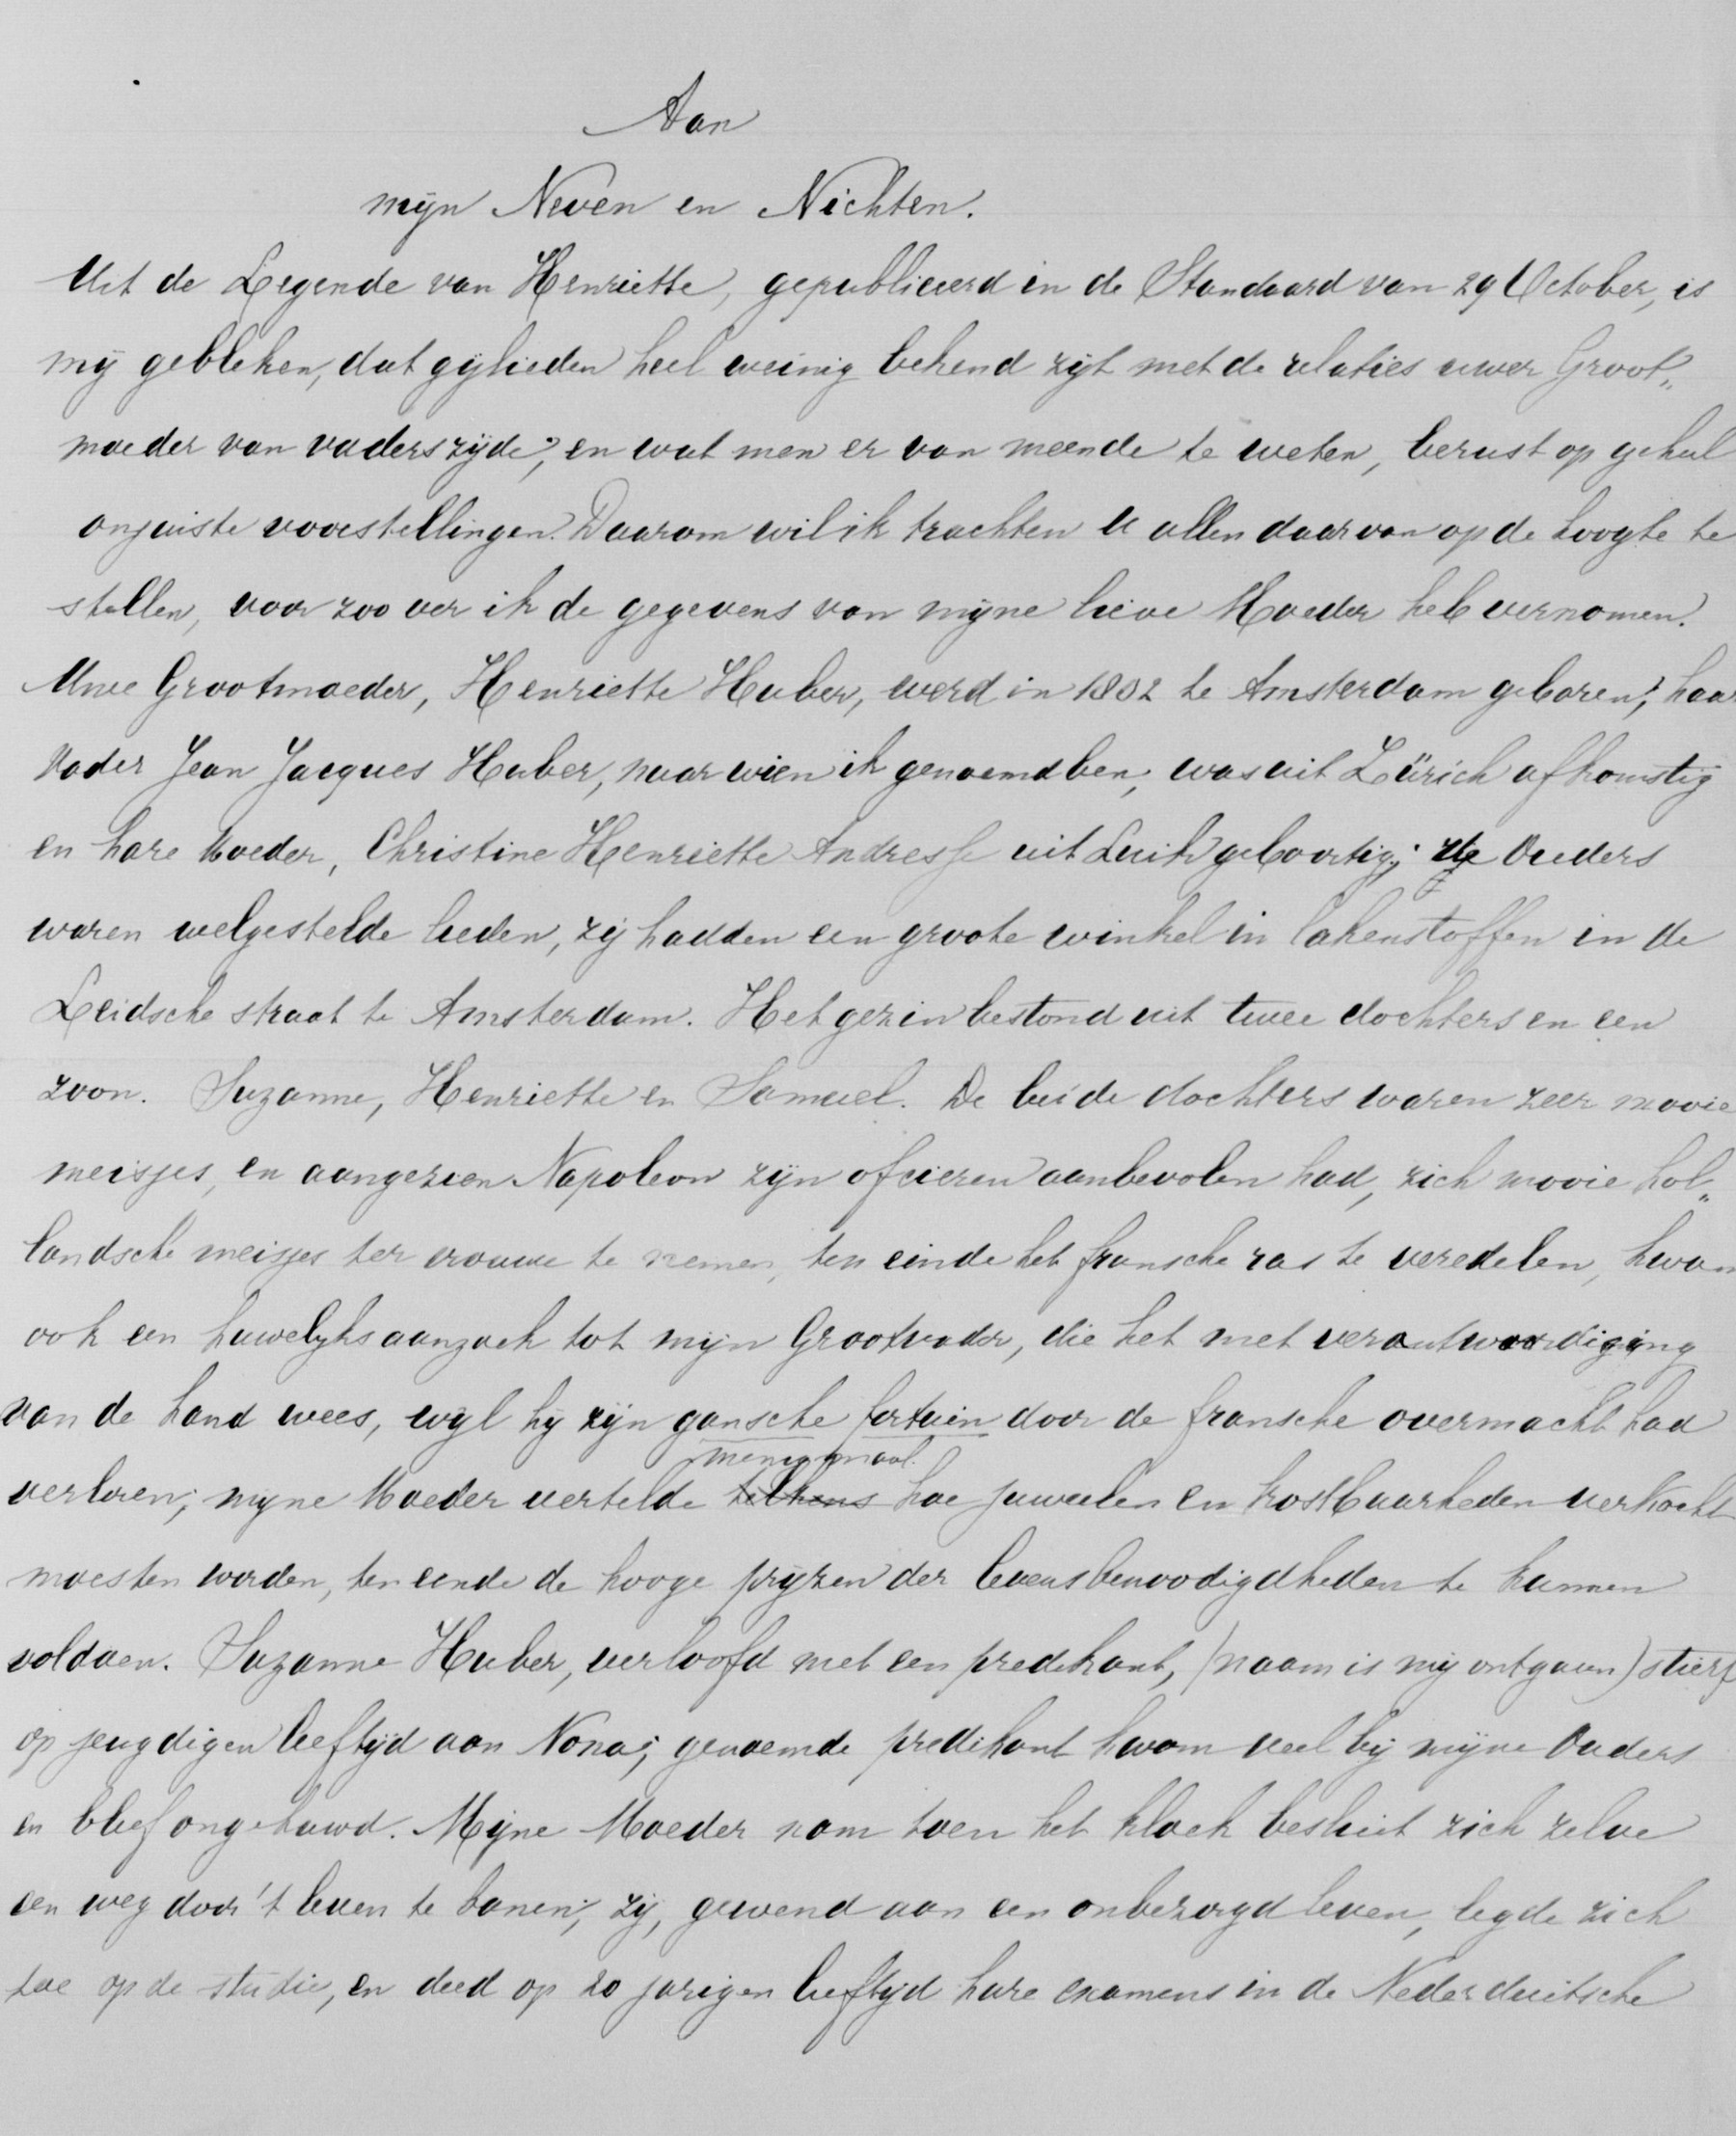 Aan
mijn Neven en Nichten.
Uit de Legende van Henriette, gepubliceerd in de Standaard van 29 October, is
mij gebleken, dat gijlieden heel weinig bekend zijt met de relaties uwer Groot„
moeder van vaderszijde; en wat men er van meende te weten, berust op geheel
onjuiste voorstellingen. Daarom wil ik trachten U allen daarvan op de hoogte te
stellen, voor zoo ver ik de gegevens van mijne lieve Moeder heb vernomen.
Uwe Grootmoeder, Henriette Huber, werd in 1802 te Amsterdam geboren; haar
Vader Jean Jacques Huber, naar wien ik genoemd ben, was uit Zürich afkomstig
en hare Moeder, Christine Henriette Andresse uit Luik geboortig; de Ouders
waren welgestelde lieden, zij hadden een groote winkel in lakenstoffen in de
Leidsche straat te Amsterdam. Het gezin bestond uit twee dochters en een
zoon. Suzanne, Henriette en Samuel. De beide dochters waren zeer mooie
meisjes, en aangezien Napoleon zijn oficieren aanbevolen had, zich mooie hol„
landsche meisjes ter vrouwe te nemen, ten einde het fransche ras te veredelen, kwam
ook een huwelijksaanzoek tot mijn Grootvader, die het met verontwaardiging
van de hand wees, wijl hij zijn gansche fortuin door de fransche overmacht had
menigmaal.
verloren; mijne Moeder vertelde telkens hoe juweelen en kostbaarheden verkocht
moesten worden, ten einde de hooge prijzen der levensbenoodigdheden te kunnen
voldoen. Suzanne Huber, verloofd met een predikant, (naam is mij ontgaan) stierf
op jeugdigen leeftijd aan Nona; genoemde predikant kwam veel bij mijne Ouders
en bleef ongehuwd. Mijne Moeder nam toen het kloek besluit zich zelve
een weg door 't leven te banen; zij, gewend aan een onbezorgd leven, legde zich
toe op de studie, en deed op 20 jarigen leeftijd hare examens in de Nederduitsche